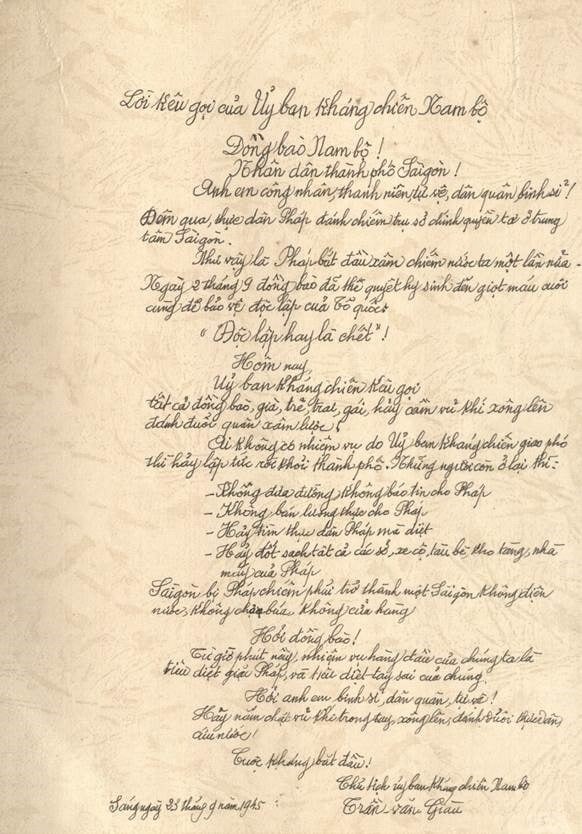 Lời kêu gọi của Uỷ ban kháng chiến Nam bộ
Đồng bào Nam bộ !
Nhân dân thành phố Sàigòn !
Anh em công nhân, thanh niên, tự vệ, dân quân, binh sĩ !
Đêm qua, thực dân Pháp đánh chiếm trụ sở chính quyền ta ở trung
tâm Sàigòn.
Như vậy là Pháp bắt đầu xâm chiếm nước ta một lần nữa.
Ngày 2 tháng 9 đồng bào đã thề quyết hy sinh đến giọt máu cuối
cùng để bảo vệ độc lập của Tổ quốc:
"Độc lập hay là chết"!
Hôm nay,
Uỷ ban kháng chiến kêu gọi
tất cả đồng bào, già, trẻ, trai, gái, hảy cầm vũ khí xông lên
đánh đuổi quân xâm lược !
Ai không có nhiệm vụ do Uỷ ban kháng chiến giao phó
thì hảy lập tức rời khỏi thành phố. Những người còn ở lại thì:
- Không đưa đường, không báo tin cho Pháp
- Không bán lương thực cho Pháp
- Hảy tìm thực dân Pháp mà diệt
- Hảy đốt sạch tất cả các sở, xe cộ, tàu bè, kho tàng, nhà
máy của Pháp
Sàigòn bị Pháp chiếm phải trở thành một Sàigòn không điện
nước, không chợ búa, không cửa hàng
Hỡi đồng bào!
Từ giờ phút này, nhiệm vụ hàng đầu của chúng ta là
tiêu diệt giặc Pháp, và tiêu diệt tay sai của chúng.
Hỡi anh em binh sĩ, dân quân, tự vệ !
Hãy nắm chặt vũ khí trong tay, xông lên, đánh đuổi thực dân,
cứu nước !
Cuộc kháng bắt đầu!
Chủ tịch ủy ban kháng chiến Nam bộ
Sáng ngày 23 tháng 9 năm 1945 Trần văn Giàu